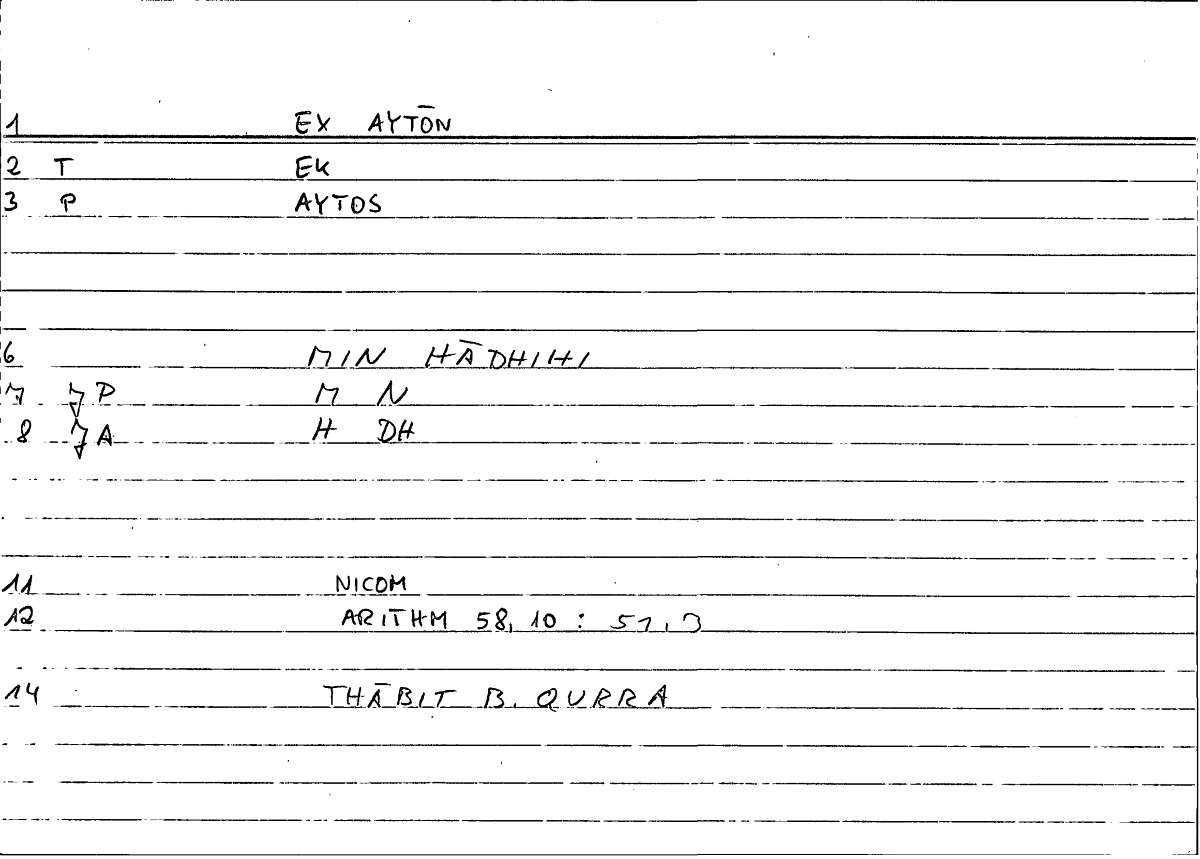 1 EX AYTŌN
2 T EK
3 P AYTOS
6 MIN HĀDHIHI
7 P M N
8 A H DH
11 NICOM
12 ARITHM 58, 10 : 51, 3
14 THĀBIT B. QURRA